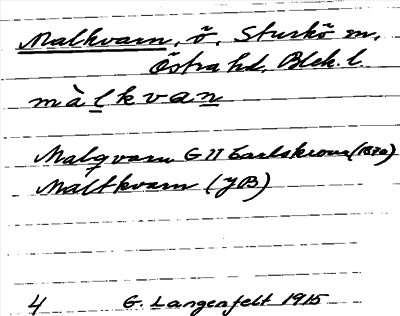 Malkvarn, ö, Sturkö sn,
Östra hd, Blek. l.
màlkvan
Malqvarn G 11 Carlskrona (1870)
Maltkvarn (JB)
4 G. Langenfelt 1915